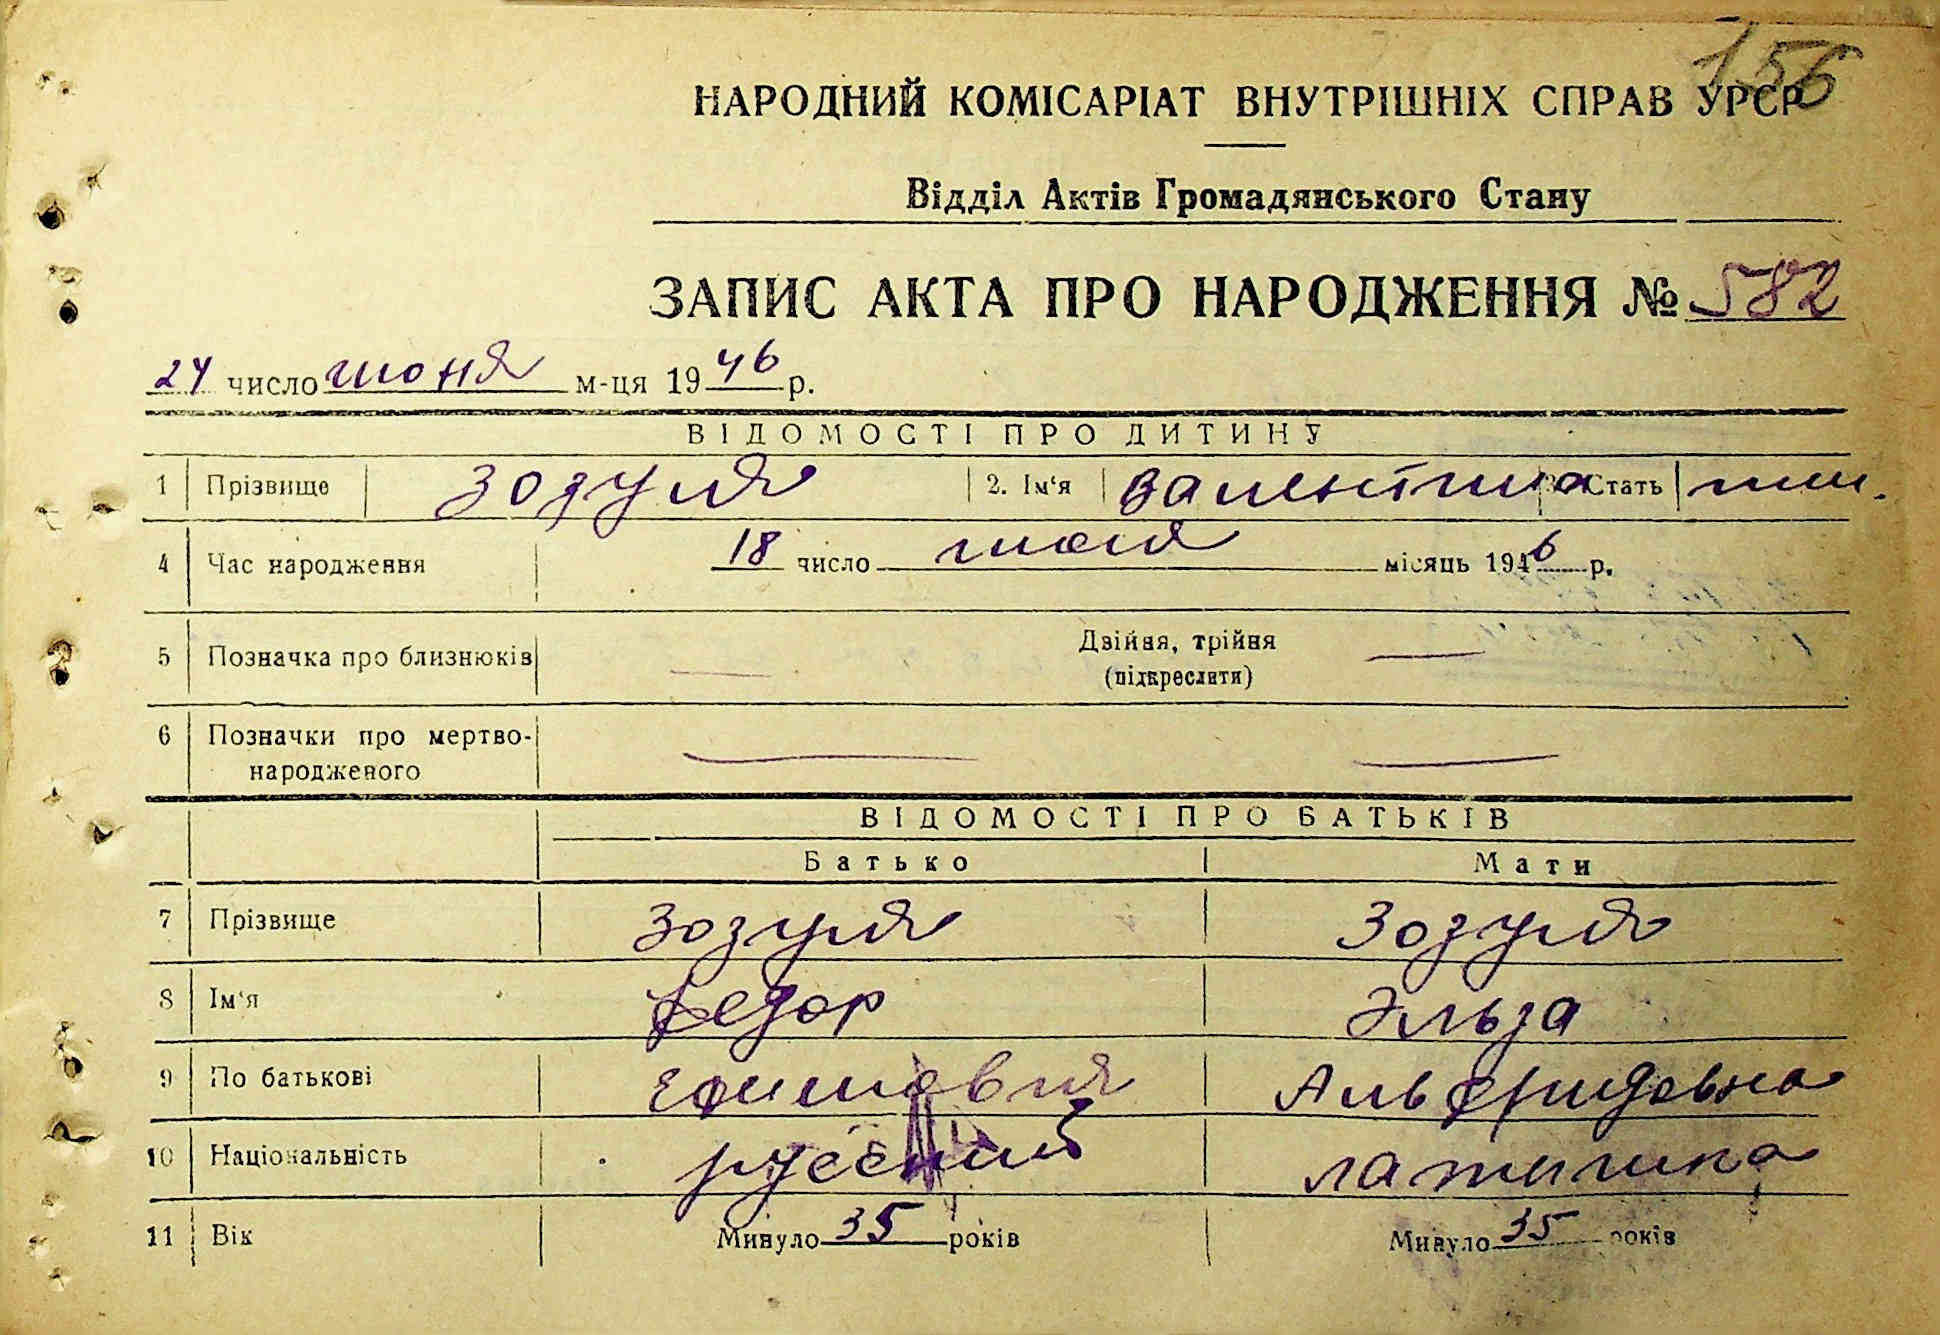 156
НАРОДНИЙ КОМІСАРІАТ ВНУТРІШНІХ СПРАВ УРСР
Відділ Актів Громадянського Стану
ЗАПИС АКТА ПРО НАРОДЖЕННЯ № 582
24 число июня м-ця 1946 р.
ВІДОМОСТІ ПРО ДИТИНУ
1 Прізвище Зозуля 2. Ім'я Валентина 3. Стать жен.
4 Час народження 18 число июня місяць 1946 р.
5 Позначка про близнюків — Двійня, трійня —
(підкреслити)
6 Позначки про мертво-
народженого — —
ВІДОМОСТІ ПРО БАТЬКІВ
Батько Мати
7 Прізвище Зозуля Зозуля
8 Ім'я Федор Эльза
9 По батькові Ефимович Альфридовна
10 Національність русский латышка
11 Вік Минуло 35 років Минуло 35 років